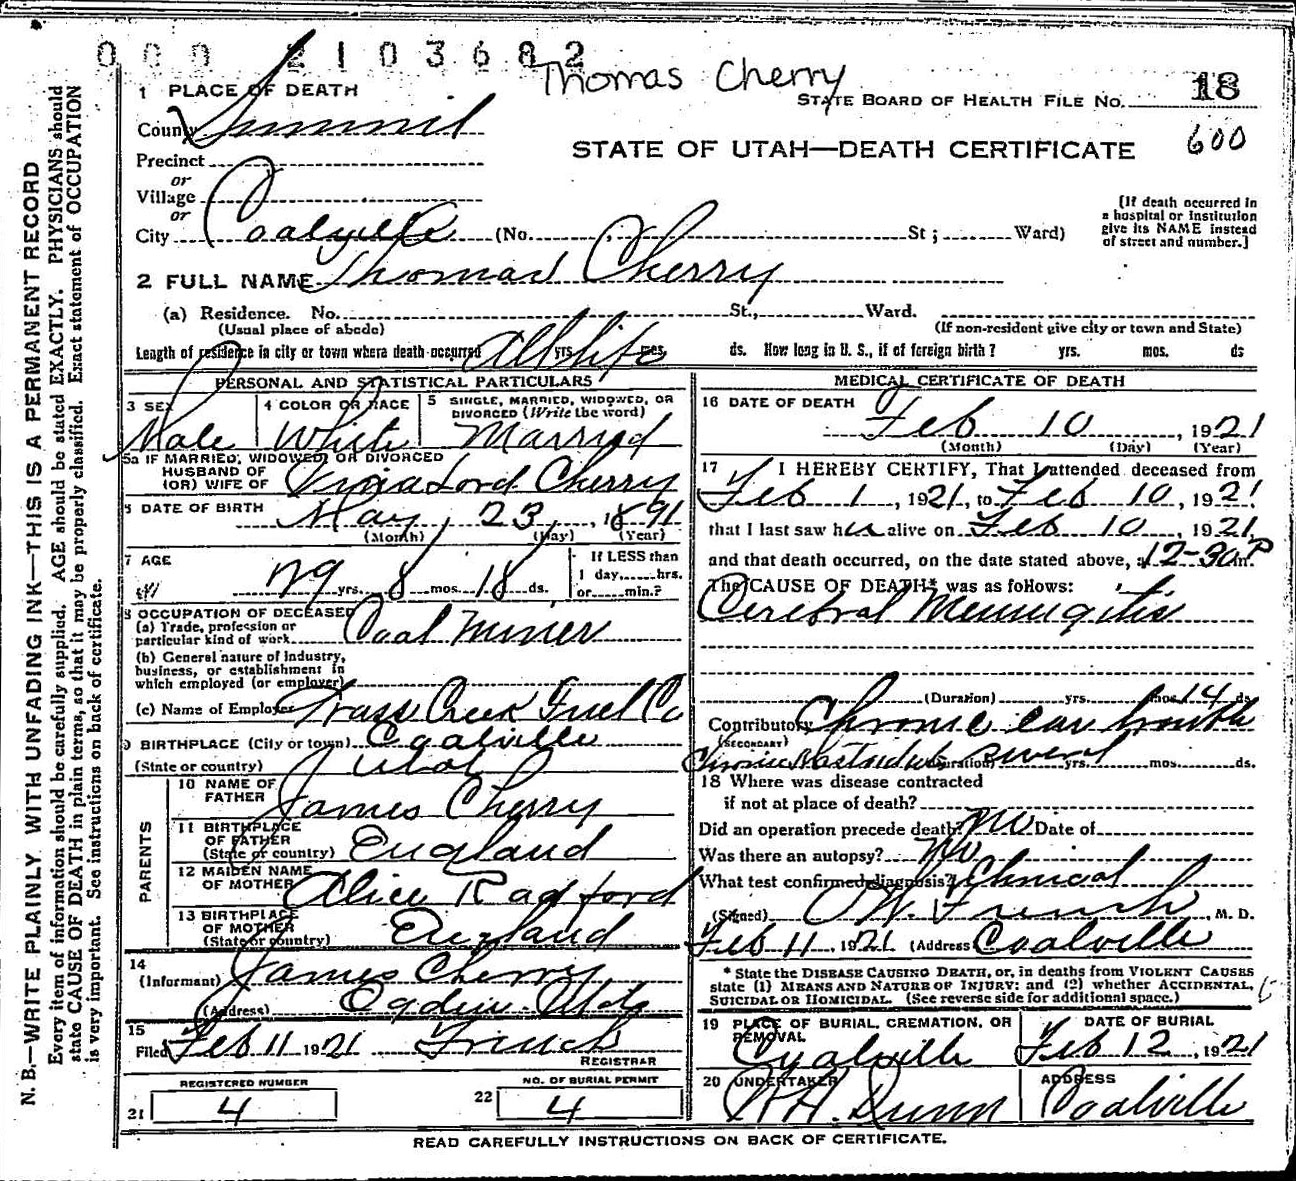 0 0 0 2 1 0 3 6 8 2
Thomas Cherry
18
STATE BOARD OF HEALTH FILE NO.
600
STATE OF UTAH—DEATH CERTIFICATE
1 PLACE OF DEATH
County Summit
Precinct
or
Village
or
City Coalville (No. St; Ward)
[If death occurred in
a hospital or institution
give its NAME instead
of street and number.]
2 FULL NAME Thomas Cherry
(a) Residence. No. St., Ward.
(Usual place of abode) (If non-resident give city or town and State)
Length of residence in city or town where death occurred All life yrs. mos. ds. How long in U. S., if of foreign birth? yrs. mos. ds
PERSONAL AND STATISTICAL PARTICULARS
3 SEX Male
4 COLOR OR RACE White
5 SINGLE, MARRIED, WIDOWED, OR
DIVORCED (Write the word)
Married
5a IF MARRIED, WIDOWED, OR DIVORCED
HUSBAND OF
(OR) WIFE OF Lord Cherry
DATE OF BIRTH May 23, 1891
(Month) (Day) (Year)
7 AGE 29 yrs. 8 mos. 18 ds.
If LESS than
1 day......hrs.
or......min.?
8 OCCUPATION OF DECEASED
(a) Trade, profession or
particular kind of work Coal Miner
(b) General nature of industry,
business, or establishment in
which employed (or employer)
(c) Name of Employer Grass Creek Fuel Co
9 BIRTHPLACE (City or town) Coalville
(State or country) Utah
PARENTS
10 NAME OF
FATHER James Cherry
11 BIRTHPLACE
OF FATHER
(State or country) England
12 MAIDEN NAME
OF MOTHER Alice Radford
13 BIRTHPLACE
OF MOTHER
(State or country) England
14
(Informant) James Cherry
(Address) Ogden Utah
15
Filed Feb 11 1921 French
REGISTRAR
REGISTERED NUMBER
21 4
NO. OF BURIAL PERMIT
22 4
MEDICAL CERTIFICATE OF DEATH
16 DATE OF DEATH
Feb 10, 1921
(Month) (Day) (Year)
17 I HEREBY CERTIFY, That I attended deceased from
Feb 1, 1921, to Feb 10, 1921
that I last saw h alive on Feb 10 1921
and that death occurred, on the date stated above, at 12-30 P m.
The CAUSE OF DEATH* was as follows:
Cerebral Meningitis
(Duration) yrs. mos. 14 ds.
Contributory Chronic ear trouble
(SECONDARY)
Chronic Mastoiditis (Duration) several yrs. mos. ds.
18 Where was disease contracted
if not at place of death?
Did an operation precede death? No Date of
Was there an autopsy? No
What test confirmed diagnosis? Clinical
(Signed) French, M. D.
Feb 11, 1921 (Address) Coalville
* State the DISEASE CAUSING DEATH, or, in deaths from VIOLENT CAUSES
state (1) MEANS AND NATURE OF INJURY; and (2) whether ACCIDENTAL,
SUICIDAL OR HOMICIDAL. (See reverse side for additional space.)
19 PLACE OF BURIAL, CREMATION, OR
REMOVAL
Coalville
DATE OF BURIAL
Feb 12, 1921
20 UNDERTAKER
Dunn
ADDRESS
Coalville
READ CAREFULLY INSTRUCTIONS ON BACK OF CERTIFICATE.
N. B.—WRITE PLAINLY, WITH UNFADING INK—THIS IS A PERMANENT RECORD
Every item of information should be carefully supplied. AGE should be stated EXACTLY. PHYSICIANS should
state CAUSE OF DEATH in plain terms, so that it may be properly classified. Exact statement of OCCUPATION
is very important. See instructions on back of certificate.